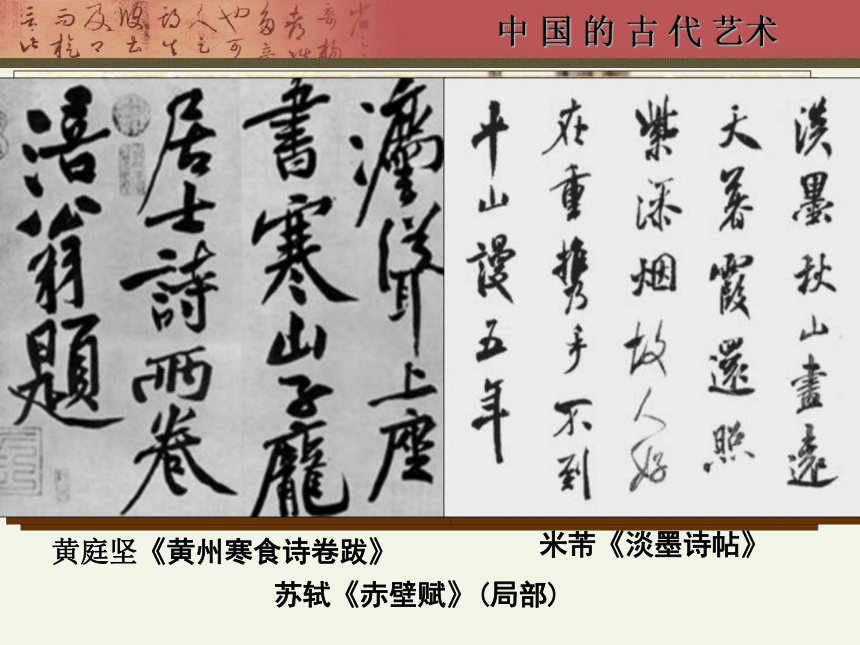 中国的古代艺术
灋聳上座
書寒山子龐
居士詩兩卷
涪翁題
淡墨秋山畫遠
天暮霞還照
紫添烟故人好
在重携手不到
平山謾五年
黄庭坚《黄州寒食诗卷跋》
米芾《淡墨诗帖》
苏轼《赤壁赋》(局部)